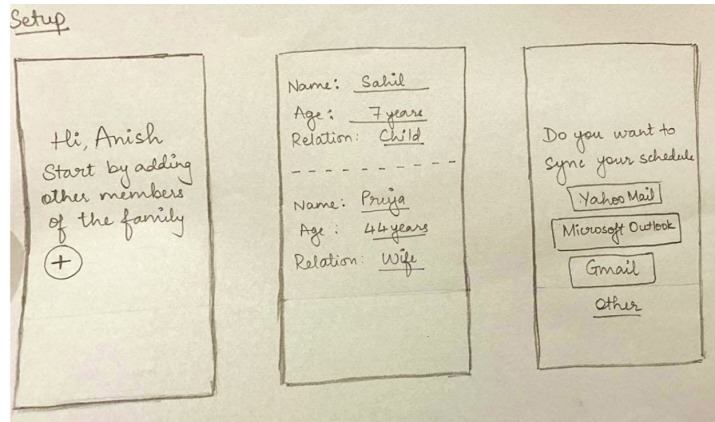 Setup
Hi, Anish
Start by adding
other members
of the family
+
Name: Sahil
Age: 7 years
Relation: Child
Name: Priya
Age: 44 years
Relation: Wife
Do you want to
sync your schedule
Yahoo Mail
Microsoft Outlook
Gmail
Other